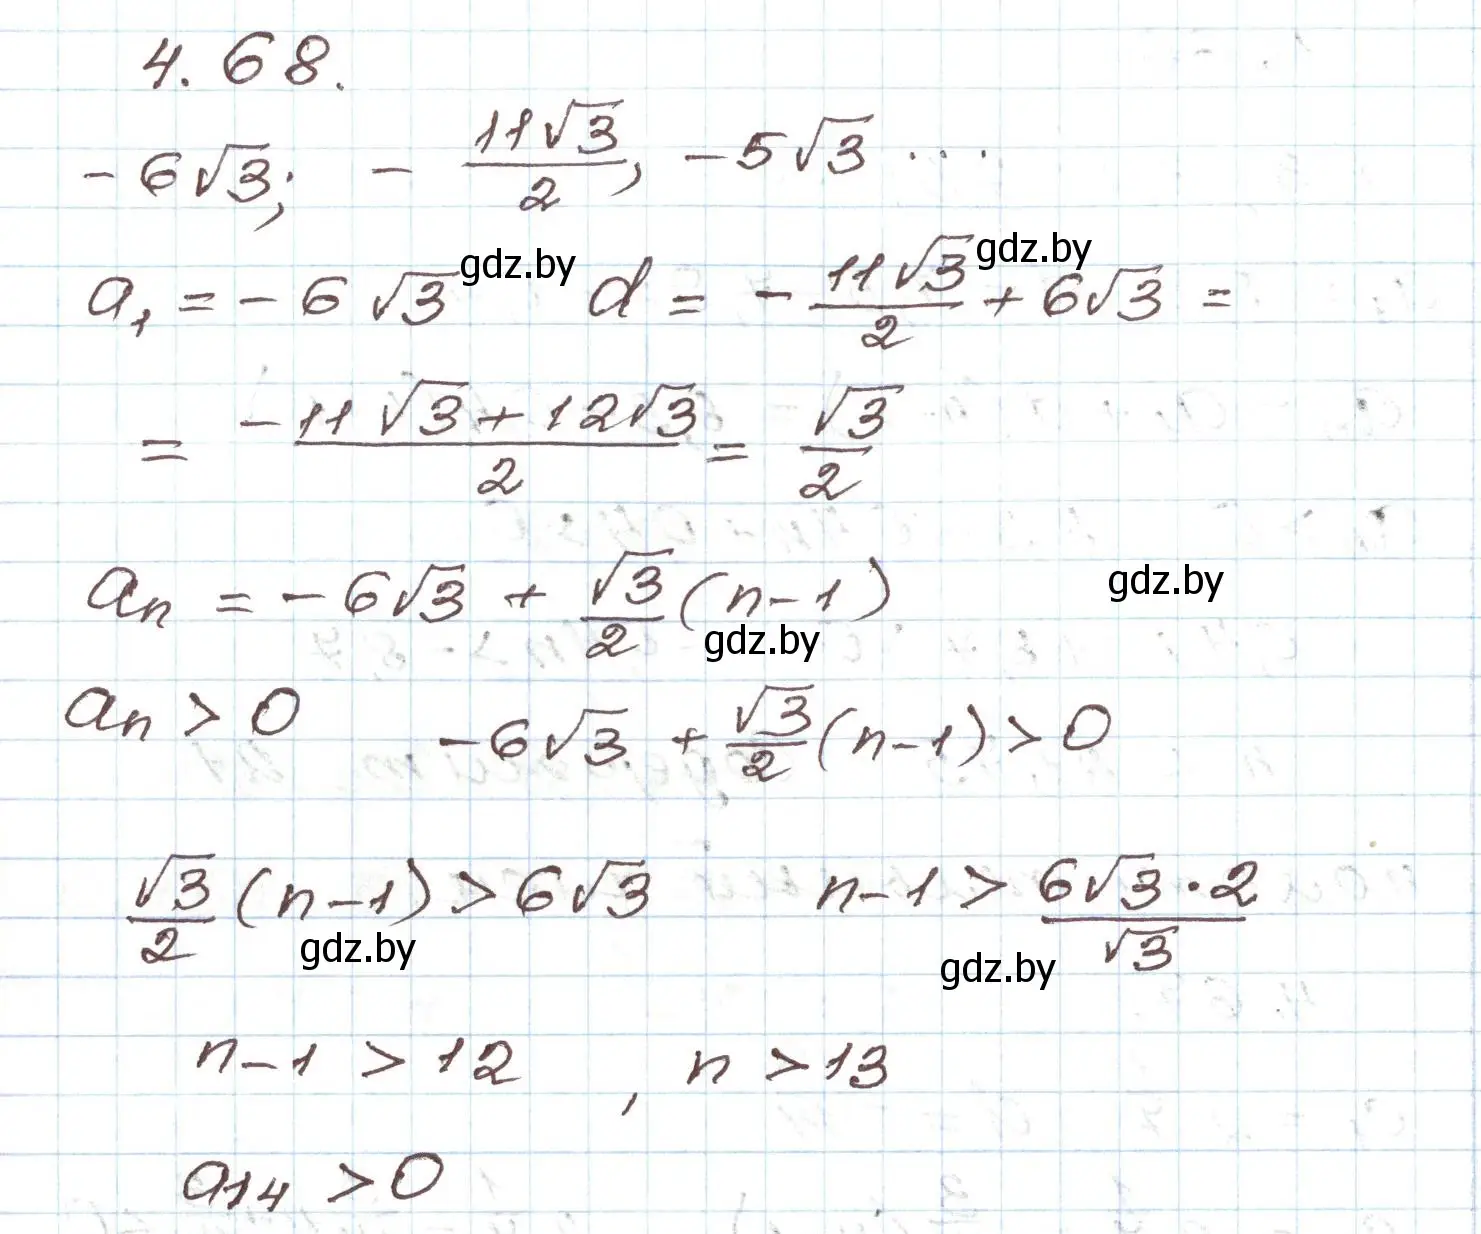 4.68.
-6√3; - 11√3/2, -5√3 ...
a₁ = -6√3 gdz.by d = - 11√3/2 + 6√3 = gdz.by
= (-11√3 + 12√3)/2 = √3/2
aₙ = -6√3 + √3/2 (n-1) gdz.by gdz.by
aₙ > 0 -6√3 + √3/2 (n-1) > 0
√3/2 (n-1) > 6√3 gdz.by n-1 > (6√3 · 2)/√3 gdz.by
n-1 > 12 , n > 13
a₁₄ > 0